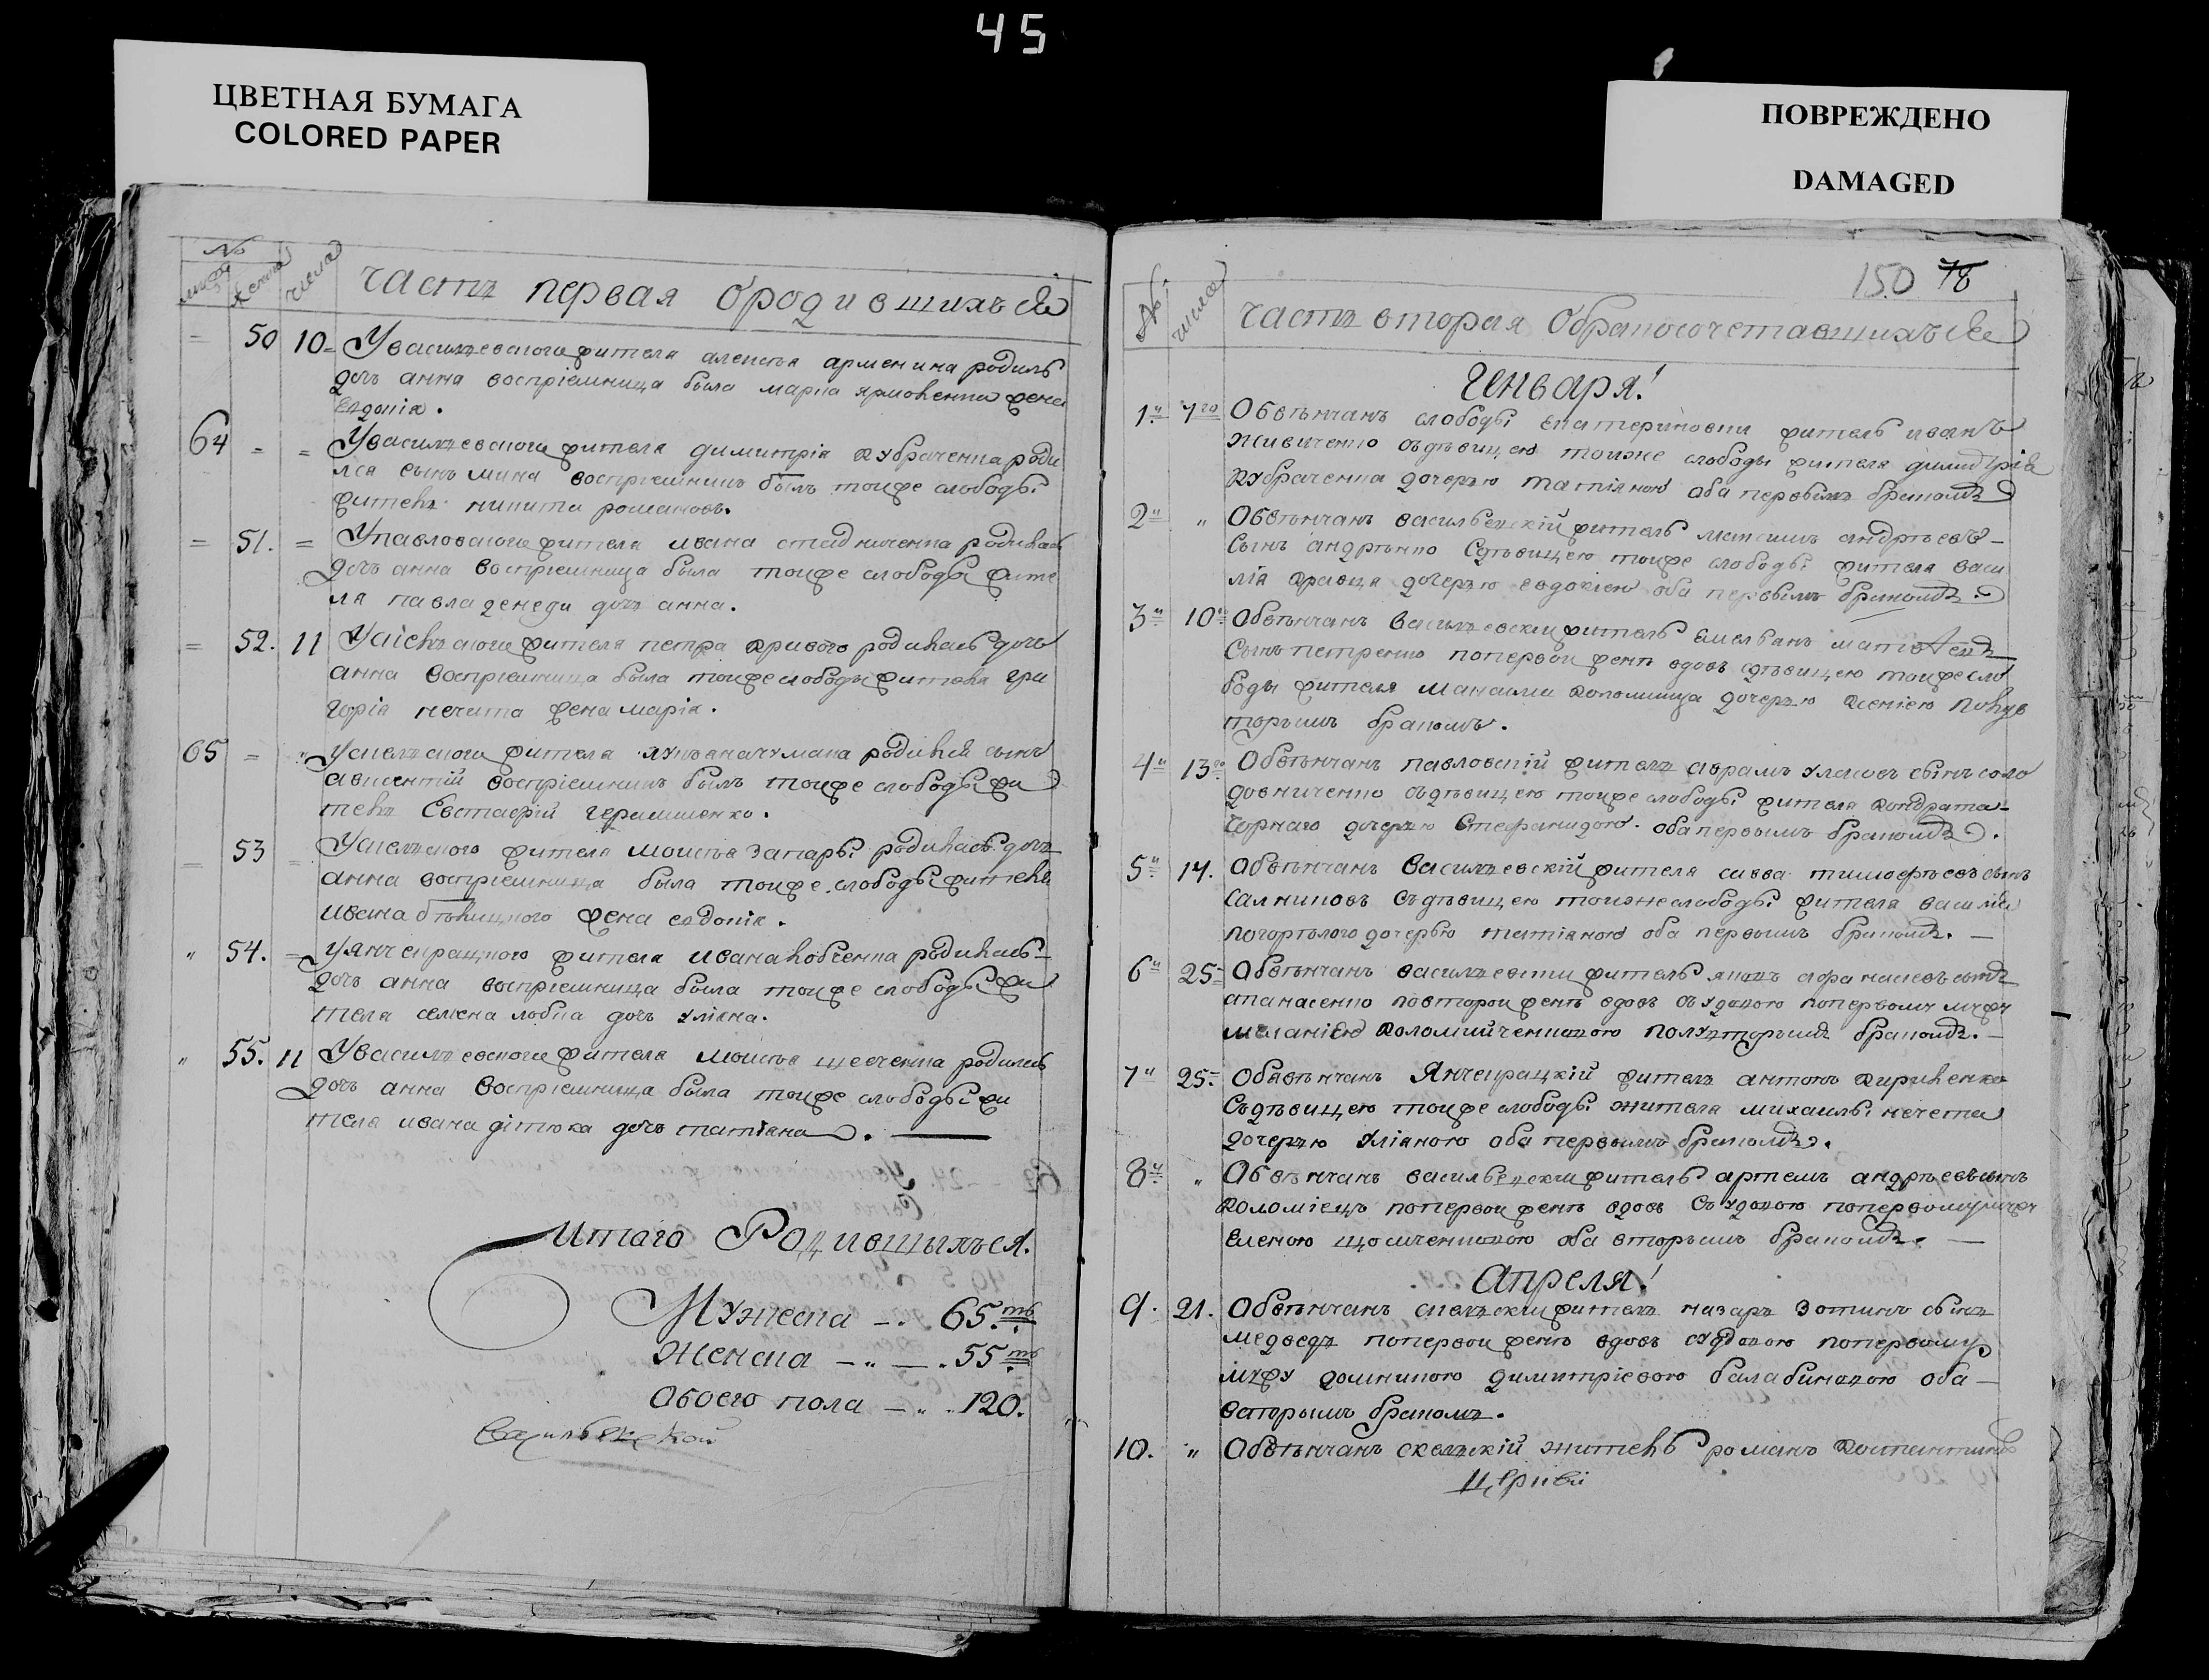 45
ЦВЕТНАЯ БУМАГА
COLORED PAPER
ПОВРЕЖДЕНО
DAMAGED
№
числа
часть первая ородившихъся
50 10 Увасильевского жителя алексѣя арменина родилъ
дочь анна воспріемница была марѣа ярмоленка жена
евдокія.
64 Увасильевского жителя димитрія кубраченка роди
лся сынъ мина воспріемникъ былъ тоиже слободы
житель никита романовъ.
51. Упавловского жителя ивана стадниченка родилась
дочь анна воспріемница была тоиже слободы жите
ля павла денеги дочь анна.
52. 11 жителя петра кривого родилась дочь
анна воспріемница была тоиже слободы жителя гри
горія нечита жена марія.
65 Ускельского жителя чумака родился сынъ
авксентій воспріемникъ былъ тоиже слободы жи
тель Евстафій герашченко.
53 Ускельского жителя моисѣя запары родилась дочь
анна воспріемница была тоиже слободы жителя
ивана бѣлицкого жена евдокія.
54. Уянчекрацкого жителя ивана кобченка родилась
дочь анна воспріемница была тоиже слободы жи
теля семена лобка дочь уліяна.
55. 11 Увасильевского жителя моисѣя родилась
дочь анна воспріемница была тоиже слободы жи
теля ивана дітюка дочь татіана.
Итого Родившыхъся.
Мужеска — 65.ть
Женска — 55.ть
Обоего пола — 120.
Васильевской
150 78
№ числа
часть вторая Обракосочетавшихъся
Генваря!
1й 7го Обвѣнчанъ слободы екатериновки житель иванъ
живиченко съдѣвицею тоижже слободы жителя димитрія
кубраченка дочерью татіяною оба первымъ бракомъ
2й " Обвѣнчанъ васильевскій житель максимъ андрѣевъ
сынъ андрѣнко съдѣвицею тоиже слободы жителя васи
лія кравца дочерью евдокіею оба первымъ бракомъ.
3й 10 Обвѣнчанъ васильевски житель емельянъ матвѣевъ
сынъ петренко попервои женѣ вдовъ съдѣвицею тоиже сло
боды жителя максима коломийца дочерью ксеніею полув
торымъ бракомъ.
4й 13го Обвѣнчанъ павловскій житель аврамъ сынъ соло
довниченко съдѣвицею тоиже слободы жителя кондрата
чорнаго дочерью стефанидою оба первымъ бракомъ.
5й 14. Обвѣнчанъ васильевскій жителя савва тимофѣевъ сынъ
салниковъ съдѣвицею тоижже слободы жителя василія
погорѣлого дочерью татіяною оба первымъ бракомъ.
6й 25 Обвѣнчанъ васильевски житель яковъ афанасіевъ сынъ
апанасенко повторои женѣ вдовъ съвдовою попервому мужу
меланіею коломийченковою полувторымъ бракомъ.
7й 25 Обвѣнчанъ Янчекрацкій житель антонъ кириленко
съдѣвицею тоиже слободы жителя михаилы нечета
дочерью уліяною оба первымъ бракомъ.
8й " Обвѣнчанъ васильевски житель артемъ андрѣевъ сынъ
коломіецъ попервои женѣ вдовъ съвдовою попервому мужу
еленою оба вторымъ бракомъ.
Апреля!
9. 21. Обвѣнчанъ скельски житель назаръ зотинъ сынъ
медведь попервои женѣ вдовъ съвдовою попервому
мужу домникою димитріевою балабиновою оба
вторымъ бракомъ.
10. " Обвѣнчанъ скельскій житель романъ константиновъ
Церкви